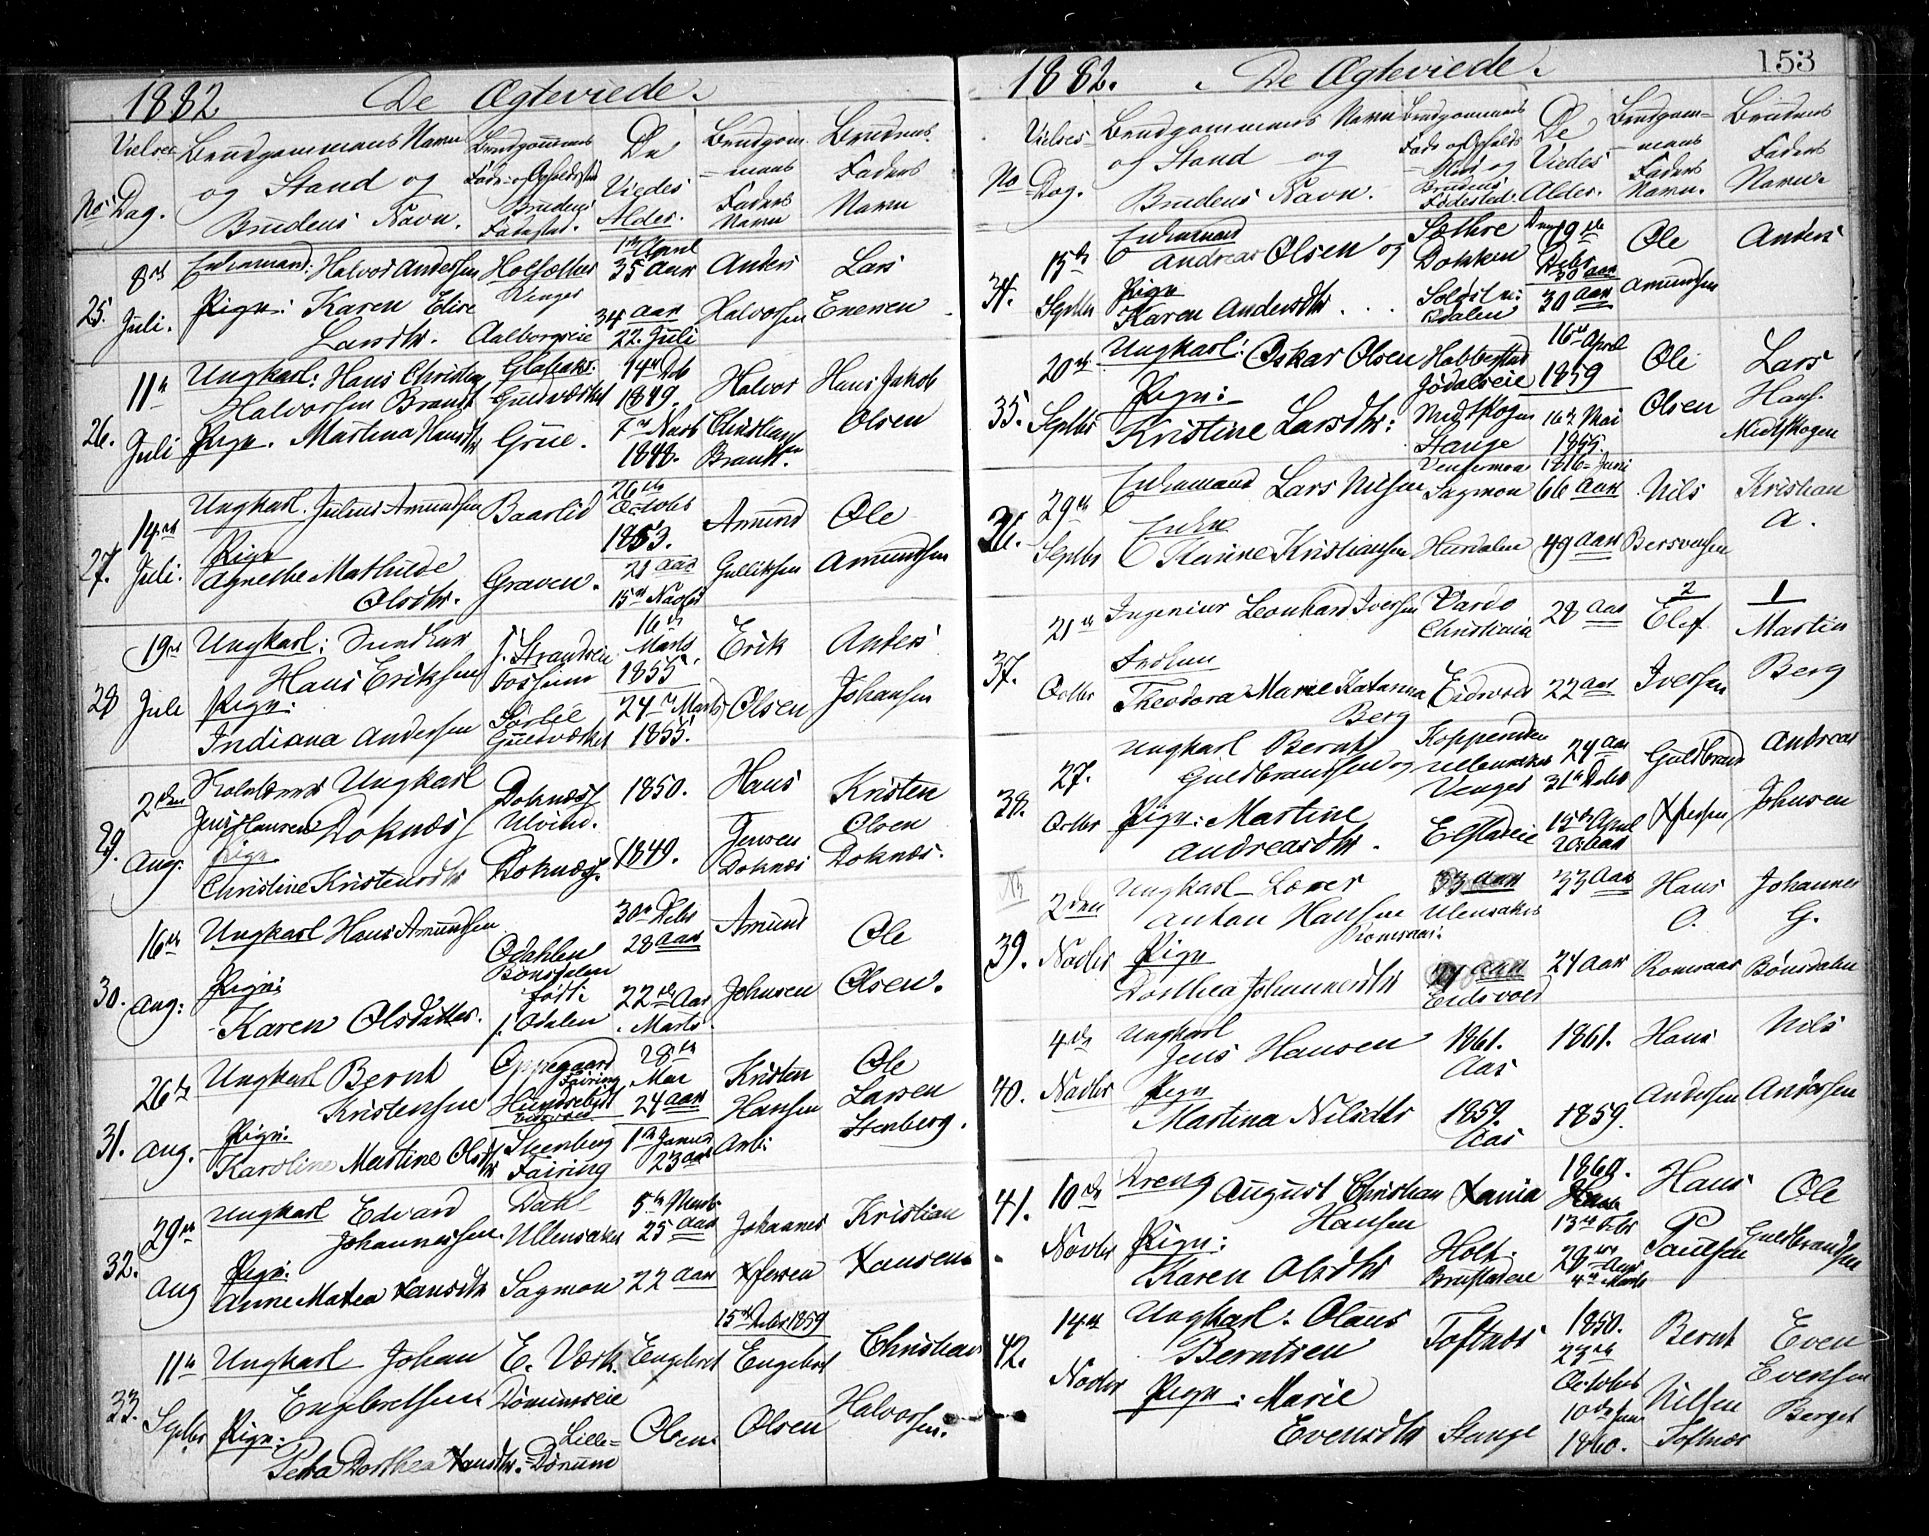 1882 De Ægteviede.
Vielses Brudgommens Navn Brudgommens De Brudgom- Brudens
og Stand og Føde- og Opholdssted Viedes -mans Faders
No Dag. Brudens Navn. Brudens Fødested. Alder. Faders Navn Navn
25. 8de Juli.
Enkemand: Halvor Andersen
Pige: Karen Elise
Larsdtr. Aalborgseie
1ste April
35 Aar
34 Aar
22. Juli
Anders
Halvorsen
Lars
Evensen
26. 11te Juli
Ungkarl: Hans Christian
Halvorsen Brandt Guldværket
Pige. Martina Hansdtr Grue.
14de Feb
1849.
7de Novb
1848.
Halvor
Christiansen
Brandt.
Hans Jakob
Olsen
27. 14de Juli.
Ungkarl. Julius Amundsen Baarlid
Pige
Agnethe Mathilde
Olsdtr. Graven.
26de
Octobr
1853.
21 Aar
15de Novbr
Amund
Gulliksen
Ole
Amundsen
28 19de Juli
Ungkarl: Snedker
Hans Eriksen
Pige:
Indiana Andersen
f. Strandseie
Fossum
Sørlie
Guldværket
16de
Marts
1855.
24de Marts
1855.
Erik
Olsen
Anders
Johansen
29. 2den Aug:
Ungkarl
Jens Laurens Doknæs
Pige
Christine Kristensdtr
Doknæs
Ulvind.
Doknæs.
1850.
1849.
Hans
Jensen
Doknæs
Kristen
Olsen
Doknæs.
30. 16de Aug:
Ungkarl Hans Amundsen
Pige:
Karen Olsdatter.
Odahlen
Bønsdalen
født i
s. Odalen
30te Debr
28 Aar
22de Aar
. Marts.
Amund
Johnsen
Ole
Olsen.
31. 26de Aug.
Ungkarl Bernt
Kristensen
Pige:
Karoline Martine Olsdtr
Oppegaard
Fairing
Steenberg
Fairing
28de
Mai
24 Aar
1ste Januar
23 Aar
Kristen
Hansen
Arb:
Ole
Larsen
Stenberg.
32. 29de Aug
Ungkarl Edvard
Johannessen.
Pige:
Anne Matea Hansdtr
Dahl
Ullensaker
Sagmoen
5te Novb.
25 Aar
22 Aar
Johannes
Kristian
Hansen
33. 11te Septbr
Ungkarl Johan
Engebretsen
Pige:
Petra Dorthea Hansdtr.
E. Værk.
Dønnumseie
Lille-
Dønnum
15de Febr 1859
Engebret
Olsen.
Engebret
Olsen
Christian
Halvorsen.
153
1882. De Ægteviede.
Vielses- Brudgommens Navn Brudgommens De Brudgom- Brudens
og Stand og Føde og Opholds Viedes -mans Faders
No Dag. Brudens Navn. Sted og Brudens Fødested. Alder. Faders Navn. Navn.
34. 15de Septbr
Enkemand
Andreas Olsen og
Pige
Karen Andersdtr . . .
Sæthre
Dokken
19de
Debr
30 Aar
30 Aar
Ole
Amundsen
Anders
35. 20de Septbr
Ungkarl: Oskar Olsen
Pige:
Kristine Larsdtr:
Habberstad
Jødalseie
Midtskogen
Stange
16de April
1859
16de Mai
1855.
Ole
Olsen
Lars
Hans.
Midtskogen
36. 29de Septbr
Enkemand Lars Nilsen
Enke
Karine Kristiansen
Sagmoen
Hardalen
1816 Juni
66 Aar
49 Aar
Nils
Bersvensen
Kristian
A.
37. 21de Octbr
Ingeniør Leonhard Iversen
Frøken
Theodora Marie Katarina
Berg
Vardo
Christiania
Eidsvold
28 Aar
22 Aar
2
Elef
Iversen
1
Martin
Berg
38. 27. Octbr
Ungkarl Bernt
Guldbrandsen og
Pige: Martine
Andreasdtr.
Ullensaker
Venger
Elstadeie
24 Aar
31te Debr
15de April
20 Aar
Guldbrand
Andreas
Johnsen
39. 2den Novbr
Ungkarl Lærer
Anton Hansen
Romsaas:
Pige
Dorthea Johannesdtr
33 Aar
Ulensaker
24 Aar
Eidsvold
33 Aar
24 Aar
Hans
O.
Romsaas
Johannes
G.
Bønsdalen
40. 4de Novbr
Ungkarl
Jens Hansen
Pige
Martina Nilsdtr
1861.
Aas
1859.
Aas
1861.
1859.
Hans
Andersen
Nils
Andersen
41. 10de Novbr
Dreng August Christian
Hansen
Pige:
Karen Olsdtr
Hania
Holt.
1860.
13de Febr
28de Aar
4de Marts
Hans
Paulsen
Ole
Guldbrandsen
42. 14de Novbr
Ungkarl: Olaus
Berntsen
Pige: Marie
Evensdtr
Toftnæs
Stange
1850.
27de
Octobr
10de Juni
1860.
Bernt
Nilsen
Toftnæs
Even
Evensen
Berget